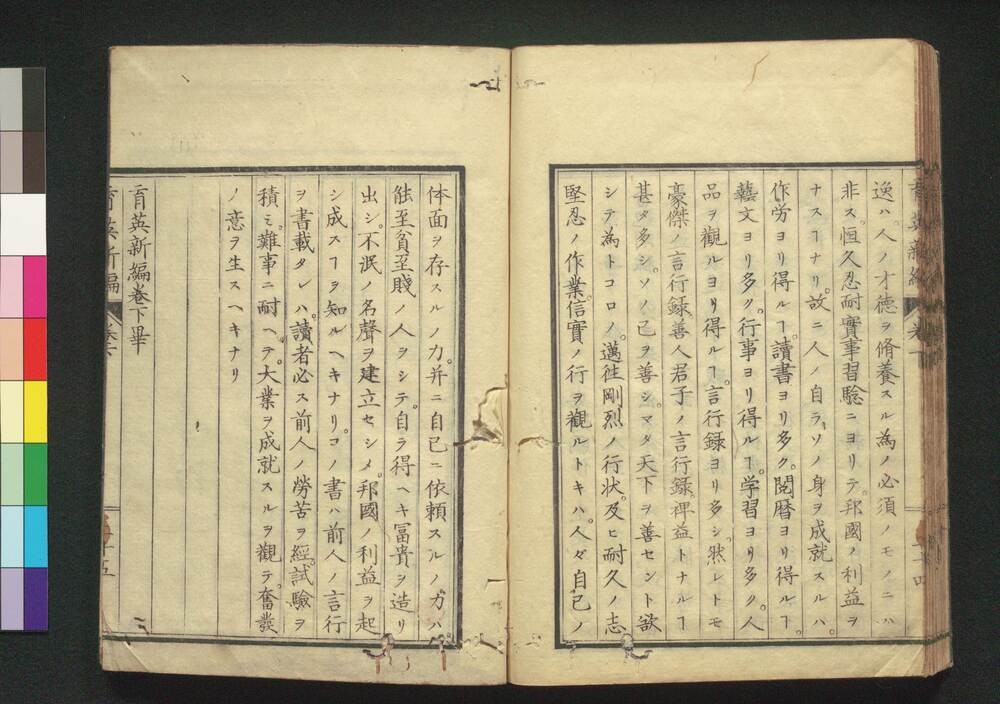 育英新編　卷下　二十四
逸ハ。人ノ才德ヲ脩養スル為ノ必須ノモノニハ
非ス。恒久忍耐實事習騐ニヨリテ。邦國ノ利益ヲ
ナスヿナリ。故ニ人ノ自ラ。ソノ身ヲ成就スルハ。
作労ヨリ得ルヿ。讀書ヨリ多ク。閲曆ヨリ得ルヿ。
藝文ヨリ多ク。行事ヨリ得ルヿ。学習ヨリ多ク。人
品ヲ觀ルヨリ得ルヿ。言行録ヨリ多シ。然レトモ
豪傑ノ言行録。善人君子ノ言行録。裨益トナルヿ
甚タ多シ。ソノ已ヲ善シ。マタ天下ヲ善セント欲
シテ。為トコロノ。邁往剛烈ノ行状。及ヒ耐久ノ志
堅忍ノ作業。信實ノ行ヲ觀ルトキハ。人々自己ノ
体面ヲ存スルノ力。并ニ自己ニ依賴スルノ力ハ。
能至貧至賤ノ人ヲシテ。自ラ得ヘキ冨貴ヲ造リ
出シ。不泯ノ名聲ヲ建立セシメ。邦國ノ利益ヲ起
シ成スヿヲ知ルヘキナリ。コノ書ハ前人ノ言行
ヲ書載タレハ。讀者必ス前人ノ勞苦ヲ經。試驗ヲ
積ミ。難事ニ耐ヘテ。大業ヲ成就スルヲ觀テ。奮發
ノ意ヲ生スヘキナリ
育英新編卷下畢
育英新編　卷下　二十五